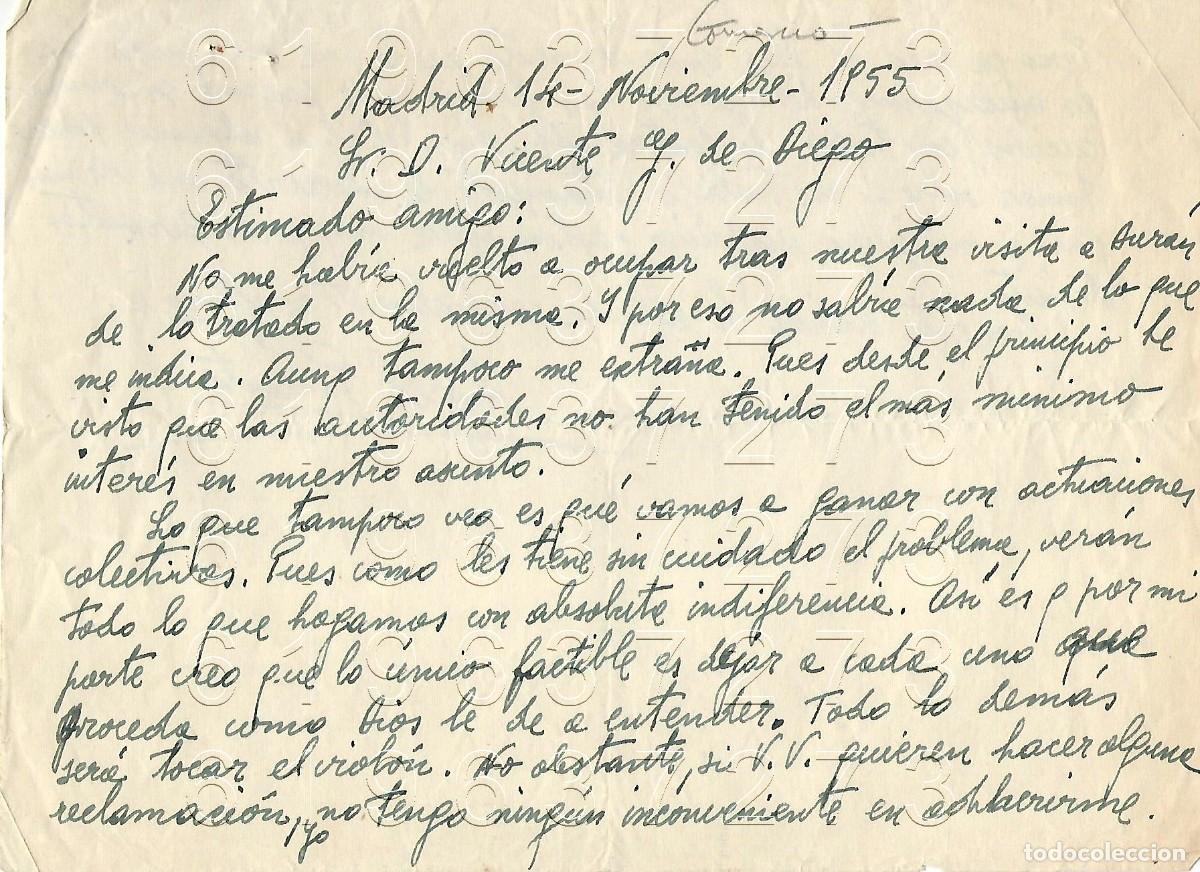 Madrid 14- Noviembre- 1955
Sr. D. Vicente G. de Diego
Estimado amigo:
No me habia vuelto a ocupar tras nuestra visita a Durán
de lo tratado en la misma. Y por eso no sabia nada de lo que
me indica. Aunq tampoco me extraña. Pues desde el principio he
visto que las autoridades no han tenido el más minimo
interés en nuestro asunto.
Lo que tampoco veo es qué vamos a ganar con actuaciones
colectivas. Pues como les tiene sin cuidado el problema, verán
todo lo que hagamos con absoluta indiferencia. Así es q por mi
parte creo que lo único factible es dejar a cada uno que
proceda como Dios le de a entender. Todo lo demás
será tocar el violón. No obstante, si V.V. quieren hacer alguna
reclamación, yo no tengo ningún inconveniente en adherirme.
619637273
todocoleccion